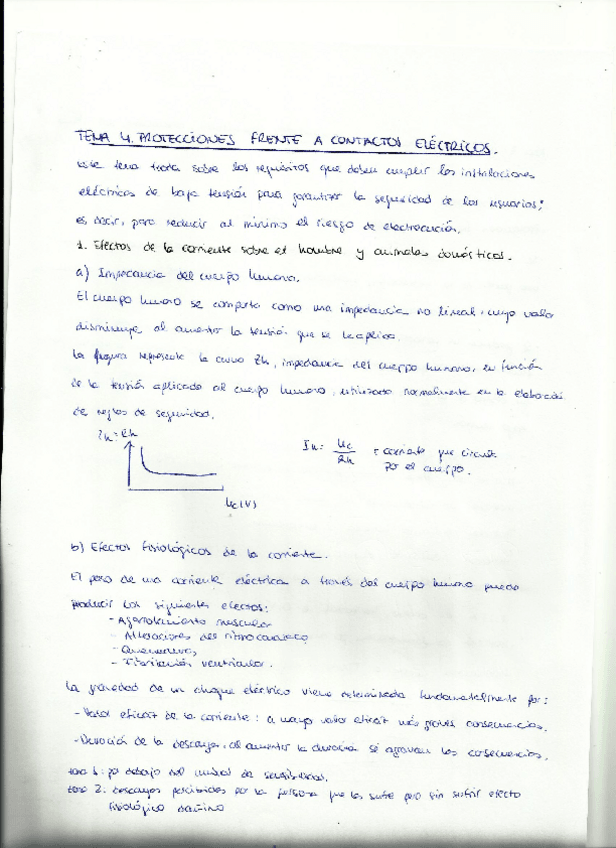 TEMA 4. PROTECCIONES FRENTE A CONTACTOS ELÉCTRICOS.
Este tema trata sobre los requisitos que deben cumplir las instalaciones
eléctricas de baja tensión para garantizar la seguridad de los usuarios;
es decir, para reducir al mínimo el riesgo de electrocución.
1. Efectos de la corriente sobre el hombre y animales domésticos.
a) Impedancia del cuerpo humano.
El cuerpo humano se comporta como una impedancia no lineal, cuyo valor
disminuye al aumentar la tensión que se le aplica.
La figura representa la curva Zh, impedancia del cuerpo humano, en función
de la tensión aplicada al cuerpo humano, utilizada normalmente en la elaboración
de reglas de seguridad.
Zh = Rh
Uc (V)
Ih = Uc / Rh = corriente que circula
por el cuerpo.
b) Efectos fisiológicos de la corriente.
El paso de una corriente eléctrica a través del cuerpo humano puede
producir los siguientes efectos:
- Agarrotamiento muscular
- Alteraciones del ritmo cardiaco
- Quemaduras
- Fibrilación ventricular.
La gravedad de un choque eléctrico viene determinada fundamentalmente por:
- Valor eficaz de la corriente: a mayor valor eficaz más graves consecuencias.
- Duración de la descarga: al aumentar la duración se agravan las consecuencias.
Zona 1: por debajo del umbral de sensibilidad.
Zona 2: descargas percibidas por la persona que las sufre pero sin sufrir efecto
fisiológico dañino